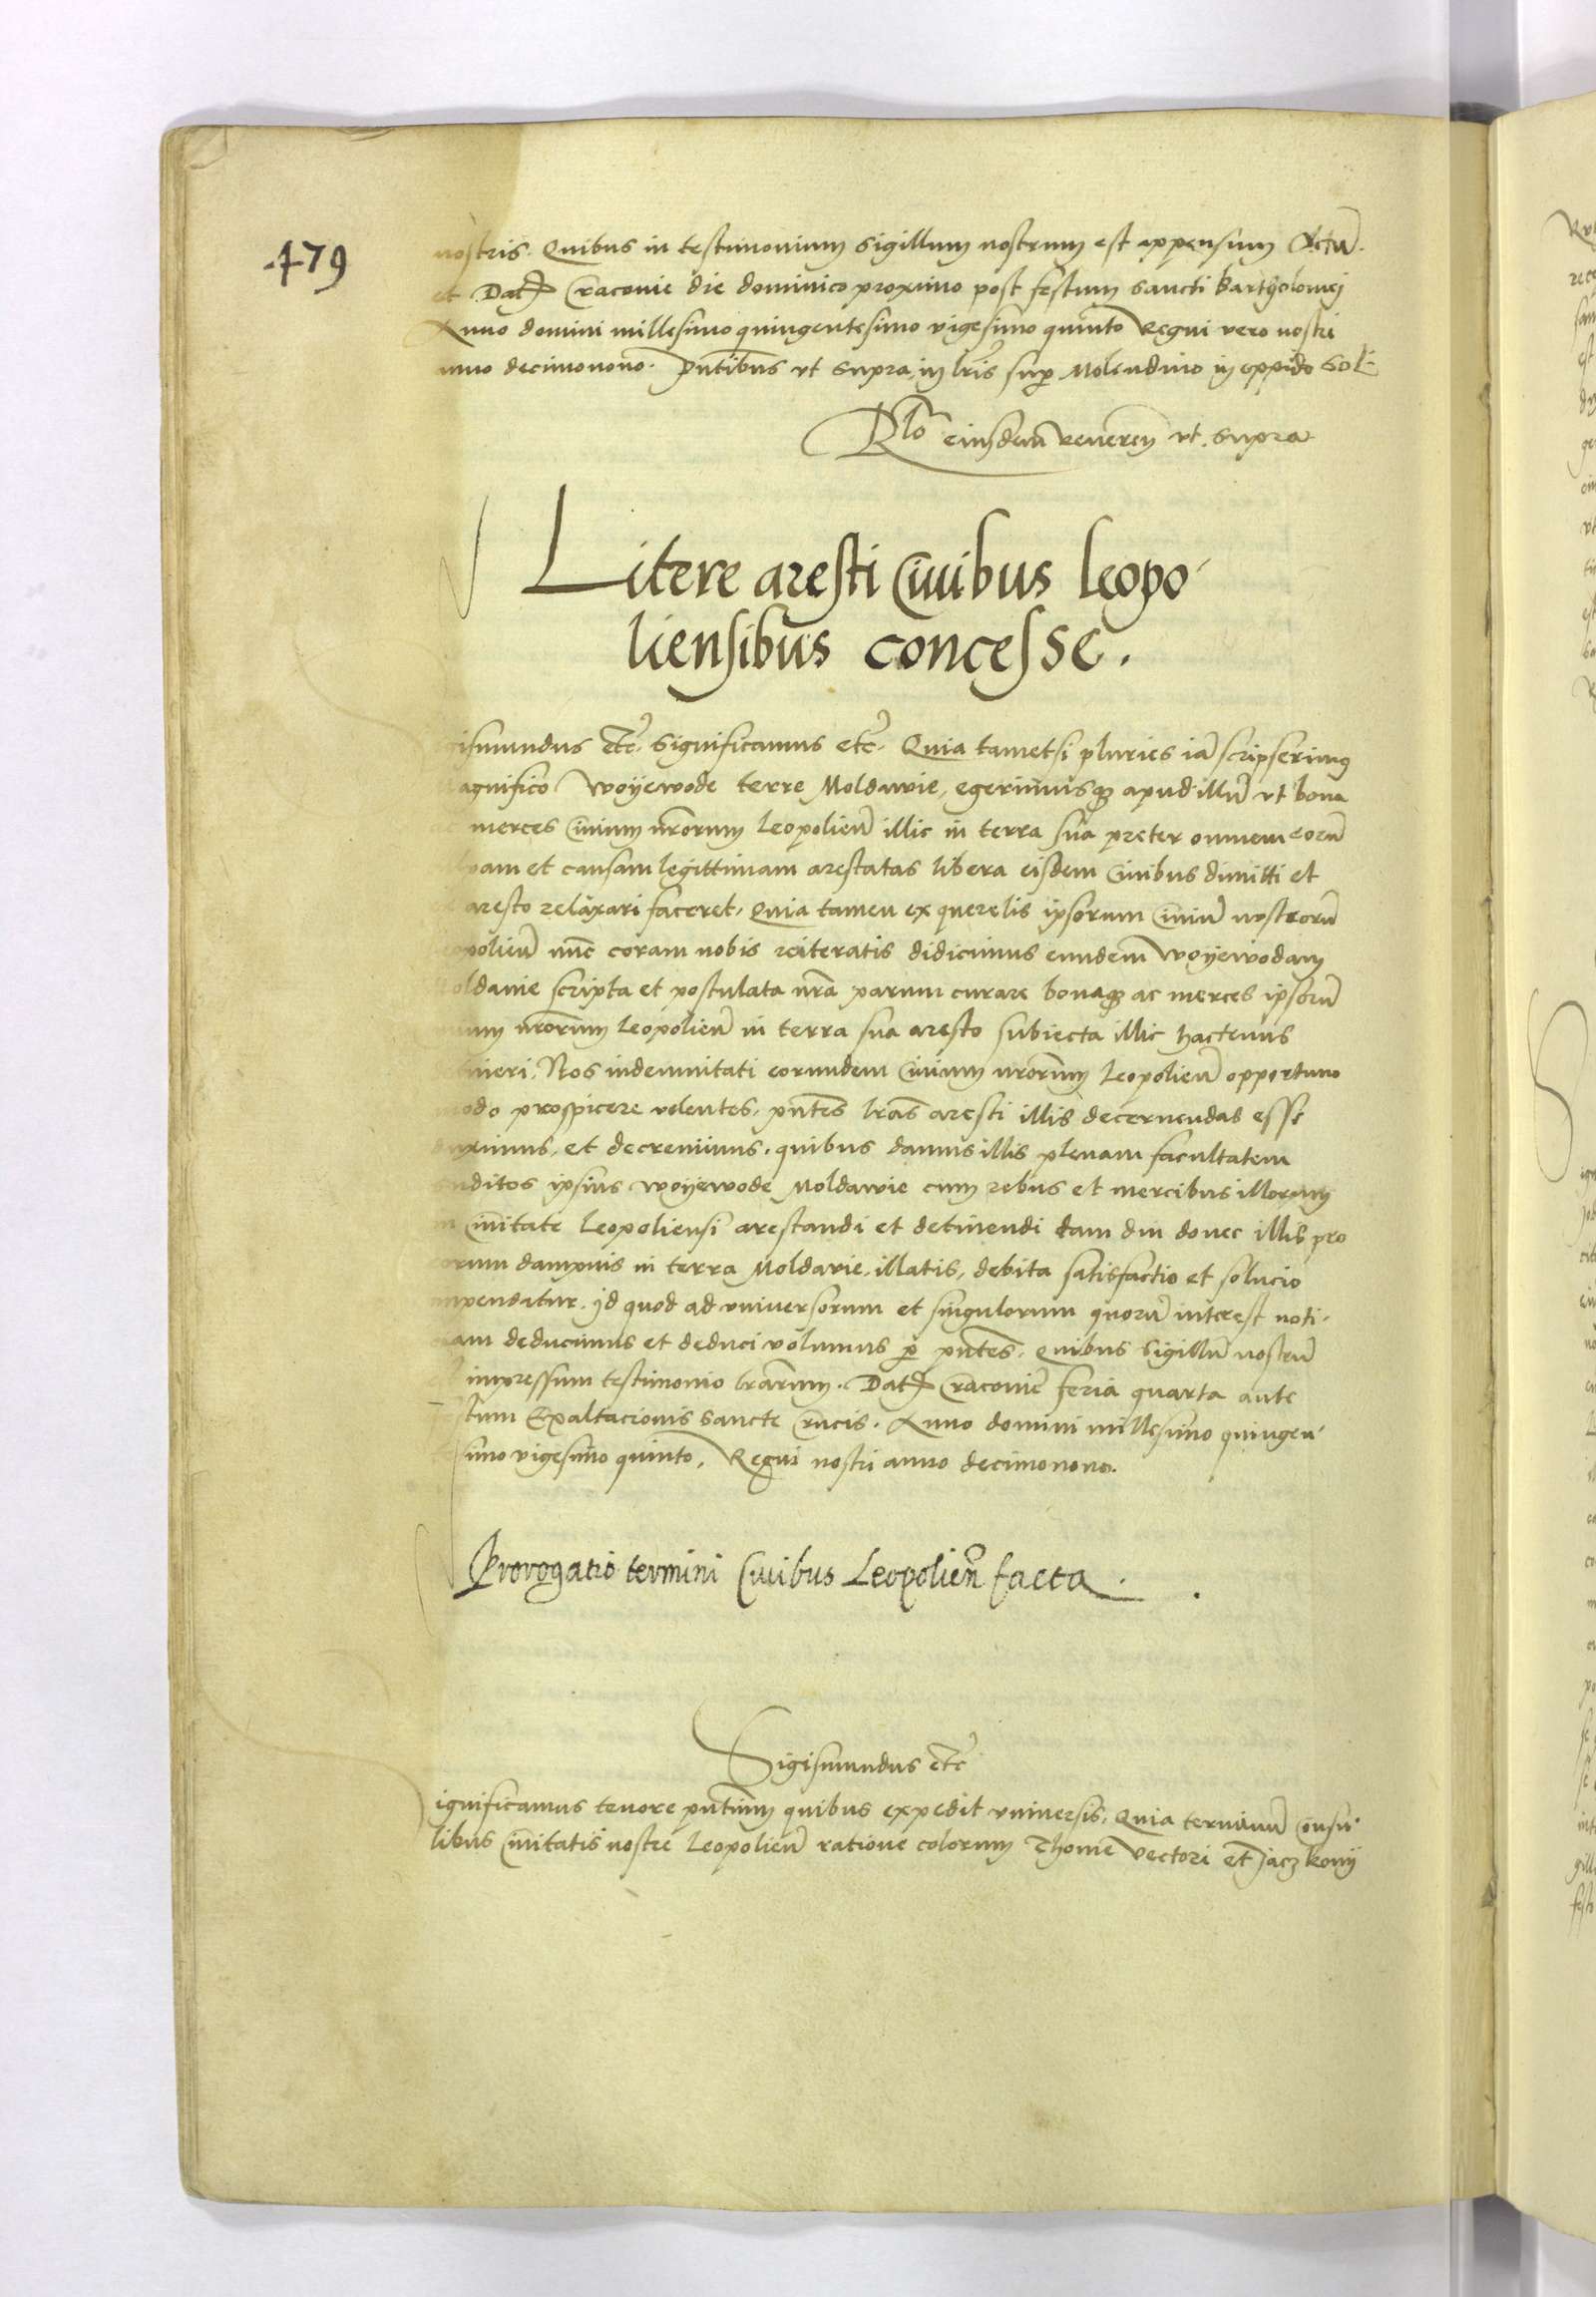 479
nostris. Quibus in testimonium Sigillum nostrum est appensum Actũ.
et Dat Cracovie die dominico proximo post festum Sancti Bartholomej
Anno domini millesimo quingentesimo vigesimo quinto Regni vero nostri
anno decimonono. Pñtibus vt supra, in lris sup Molendino in oppido Sol
Rlo eiusdem Reveren vt. supra
Litere aresti Civibus Leopo
liensibus concesse.
gismundus etc. Significamus etc. Quia tametsi pluries iã scripserimus
agnifico Woyewode terre Moldavie, egerimusqȝ apud illũ vt bona
ac merces Civium nrorum Leopolien illic in terra sua preter omnem eorũ
pam et causam legittimam arestatas libera eisdem Civibus dimitti et
aresto relaxari faceret, Quia tamen ex querelis ipsorum Civiũ nostrorũ
eopolien nũc coram nobis reiteratis didicimus eundem Woyewodam
oldavie scripta et postulata nra parum curare bonaqȝ ac merces ipsorũ
ivium nrorum Leopolien in terra sua aresto subiecta illic hactenus
tineri. Nos indemnitati eorundem Civium nrorum Leopolien opportuno
modo prospicere volentes, pntes lras aresti illis decernendas esse
duximus, et decrevimus, quibus damus illis plenam facultatem
subditos ipsius Woyewode Moldavie cum rebus et mercibus illorum
in Civitate Leopoliensi arestandi et detinendi tam diu donec illis pro
eorum dampnis in terra Moldavie, illatis, debita satisfactio et solucio
impendatur. Id quod ad vniversorum et singulorum quorũ interest noti-
ciam deducimus et deduci volumus p pntes. Quibus Sigillũ nostrũ
est impressum testimonio lrarum. Dat Cracovie feria quarta ante
festum Exaltacionis Sancte Crucis. Anno domini millesimo quingen
tesimo vigesimo quinto, Regni nostri anno decimonono.
Prorogatio termini Civibus Leopolien facta.
Sigismundus etc
ignificamus tenore pntium quibus expedit vniversis, Quia terminũ Consu
libus Civitatis nostre Leopolien ratione colorum Thome Vectori et Jaczkonij